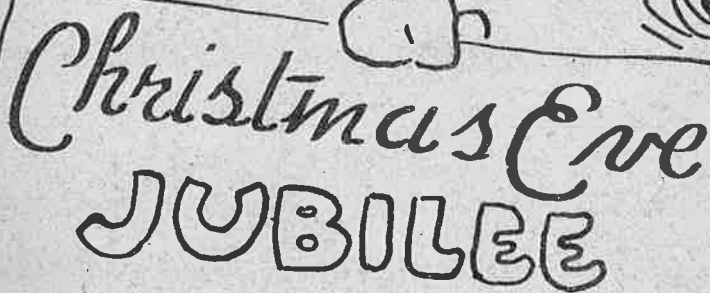 Christmas Eve
JUBILEE